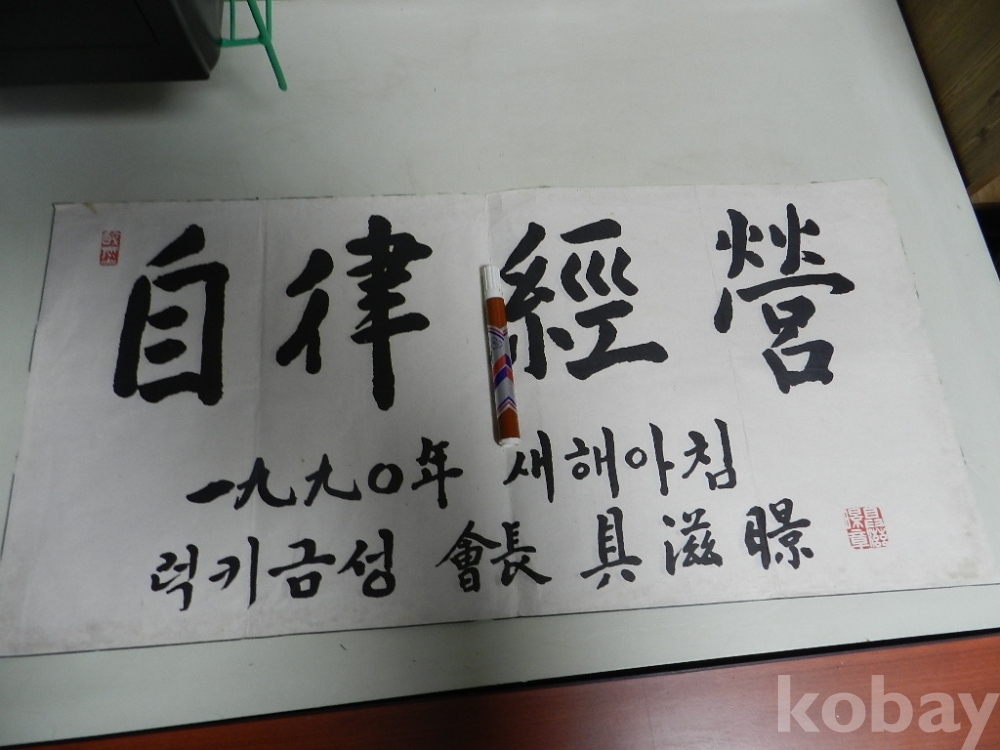 自律經營
一九九〇年 새해아침
럭키금성 會長 具滋暻
kobay